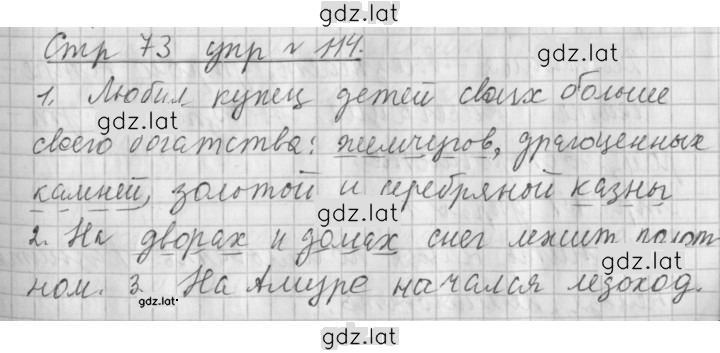 gdz.lat
Стр 73 упр № 114.
gdz.lat
1. Любил купец детей своих больше
gdz.lat
своего богатства: жемчугов, драгоценных
gdz.lat
камней, золотой и серебряной казны
gdz.lat
2. На дворах и домах снег лежит полот
gdz.lat
ном. 3. На Амуре начался ледоход.
gdz.lat
gdz.lat